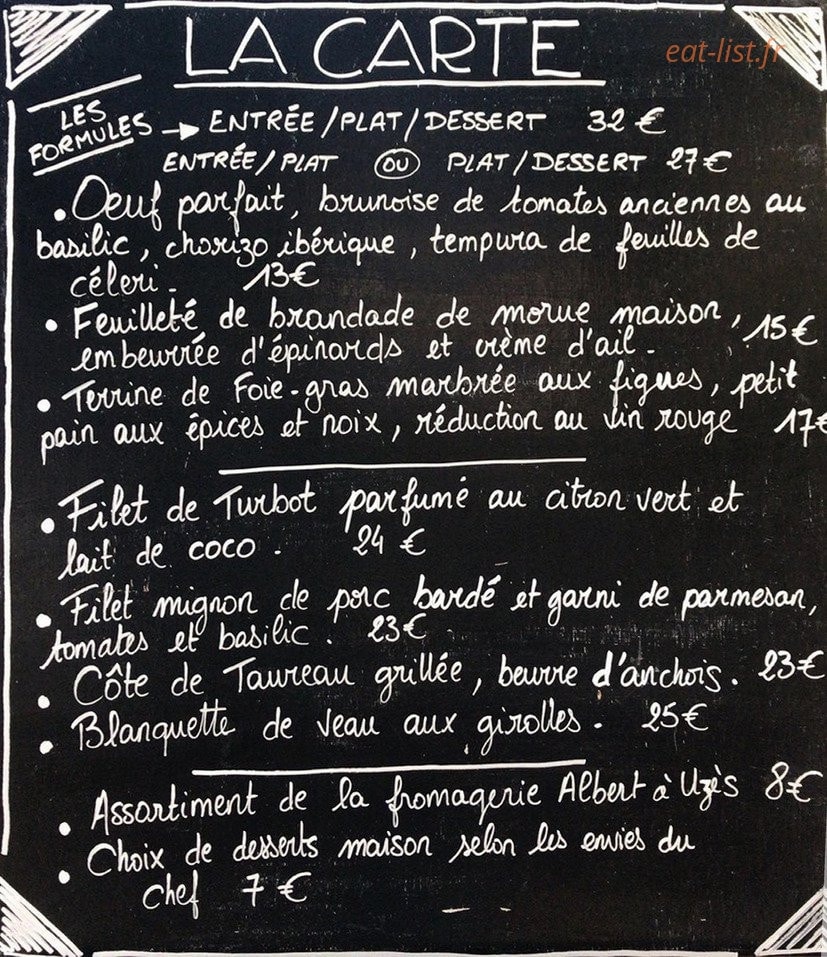 LA CARTE
eat-list.fr
LES FORMULES → ENTRÉE/PLAT/DESSERT 32 €
ENTRÉE/PLAT OU PLAT/DESSERT 27 €
• Oeuf parfait, brunoise de tomates anciennes au
basilic, chorizo ibérique, tempura de feuilles de
céleri. 13€
• Feuilleté de brandade de morue maison, 15€
embeurrée d'épinards et crème d'ail.
• Terrine de Foie-gras marbrée aux figues, petit
pain aux épices et noix, réduction au vin rouge 17€
• Filet de Turbot parfumé au citron vert et
lait de coco. 24 €
• Filet mignon de porc bardé et garni de parmesan,
tomates et basilic. 23€
• Côte de Taureau grillée, beurre d'anchois. 23€
• Blanquette de veau aux girolles. 25€
• Assortiment de la fromagerie Albert à Uzès 8€
• Choix de desserts maison selon les envies du
chef 7 €